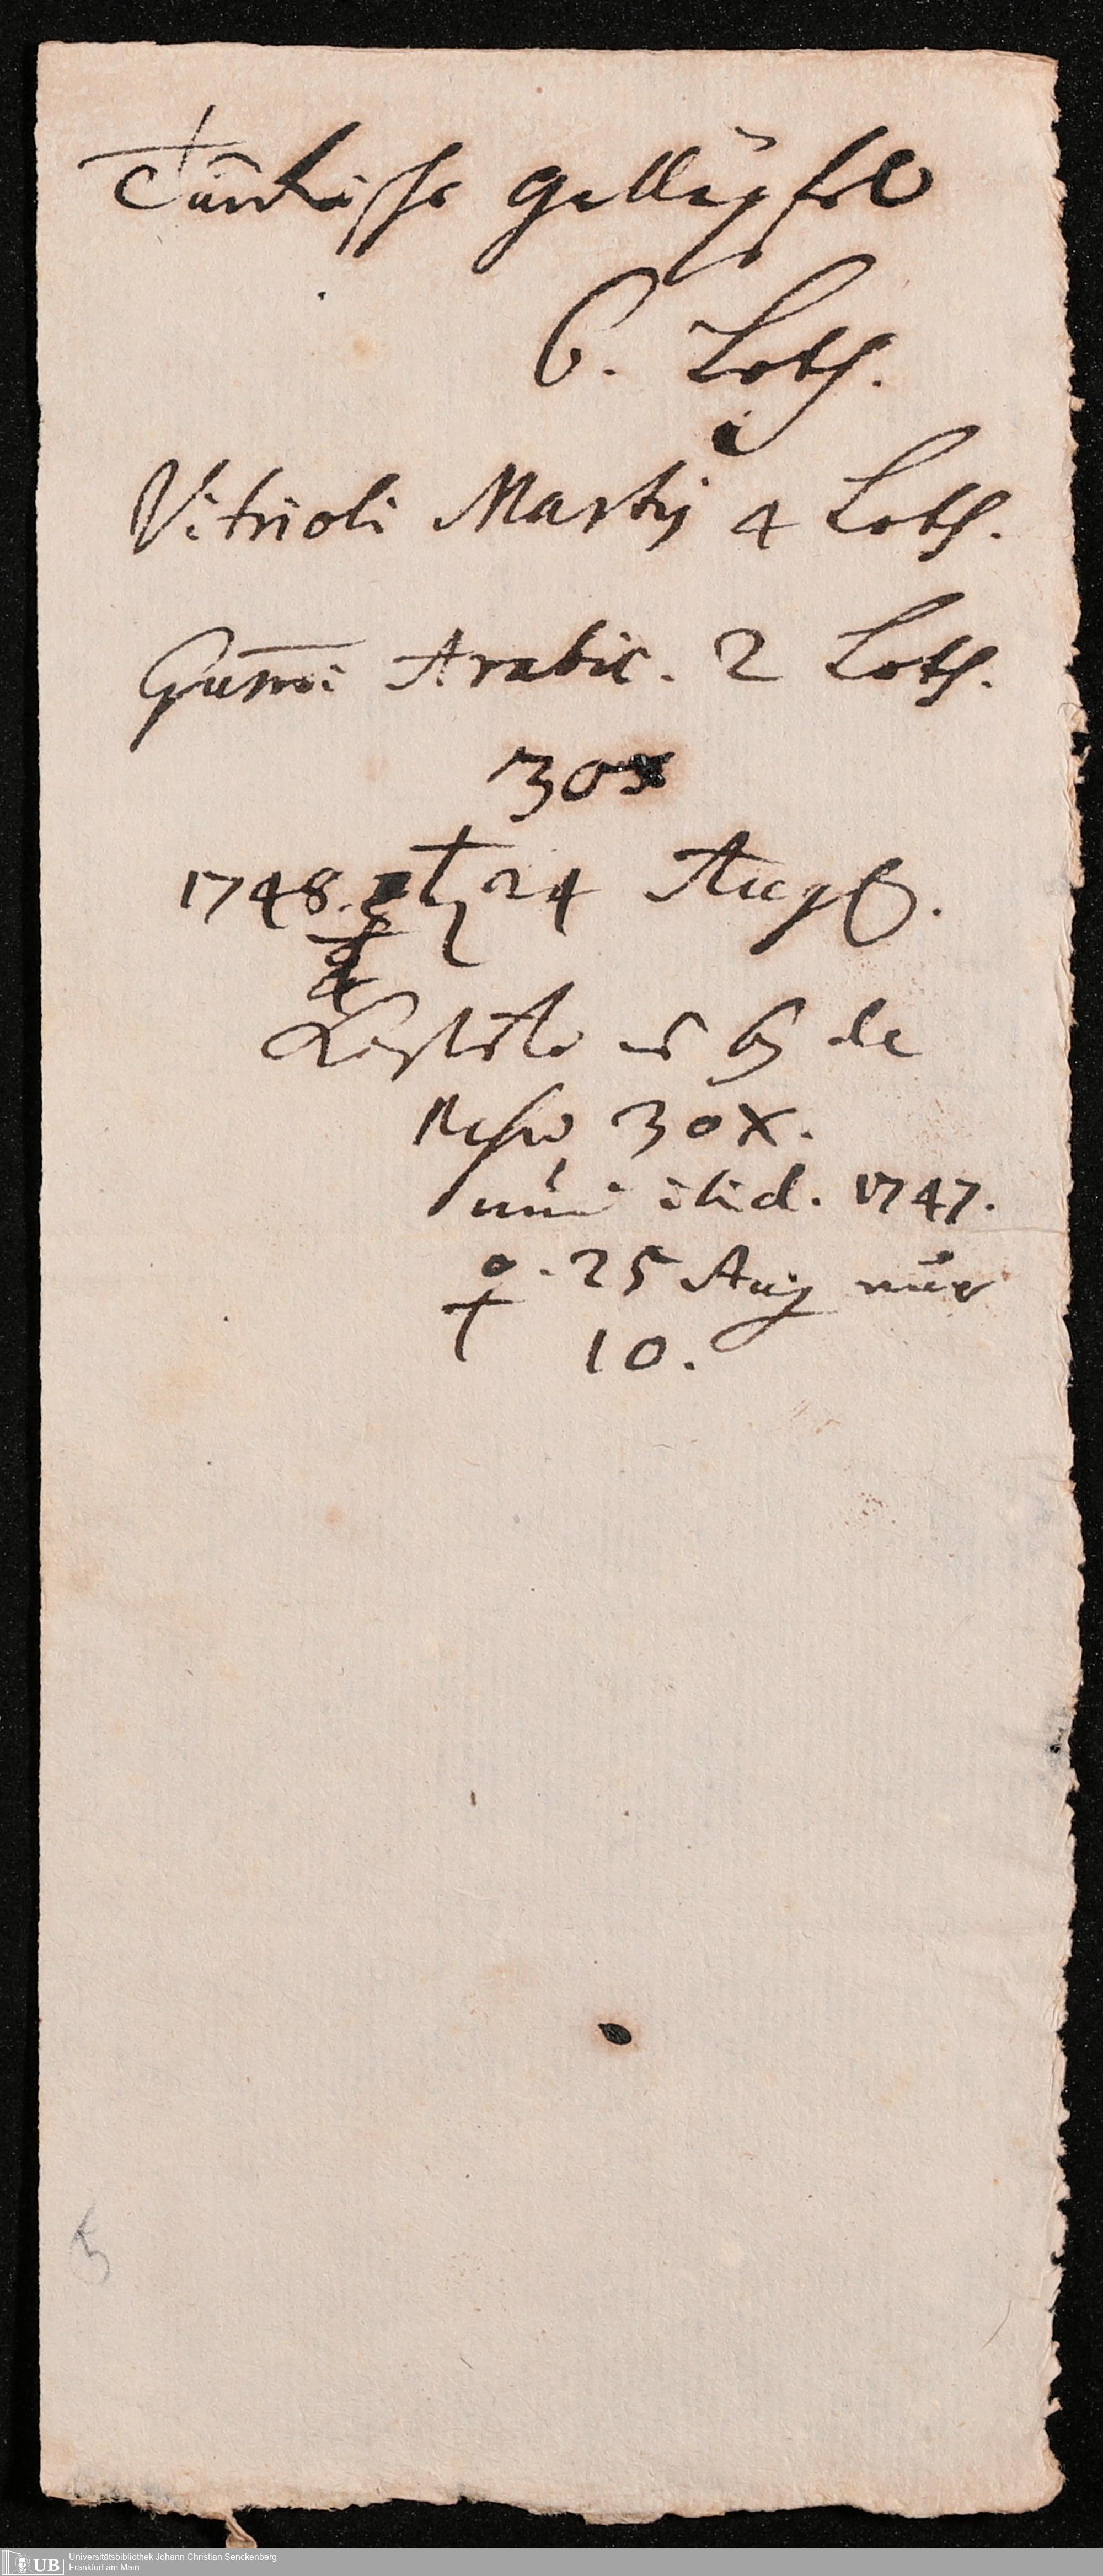 Türkische galläpfel
6. Loth.
Vitrioli Martis 4 Loth.
Gum̄i Arabic. 2 Loth.
30x
1748. ♄ 24 Aug.
kostete es bey de
30x.
ibid. 1747.
♀. 25 Aug nur
10.
5
UB Universitätsbibliothek Johann Christian Senckenberg
Frankfurt am Main